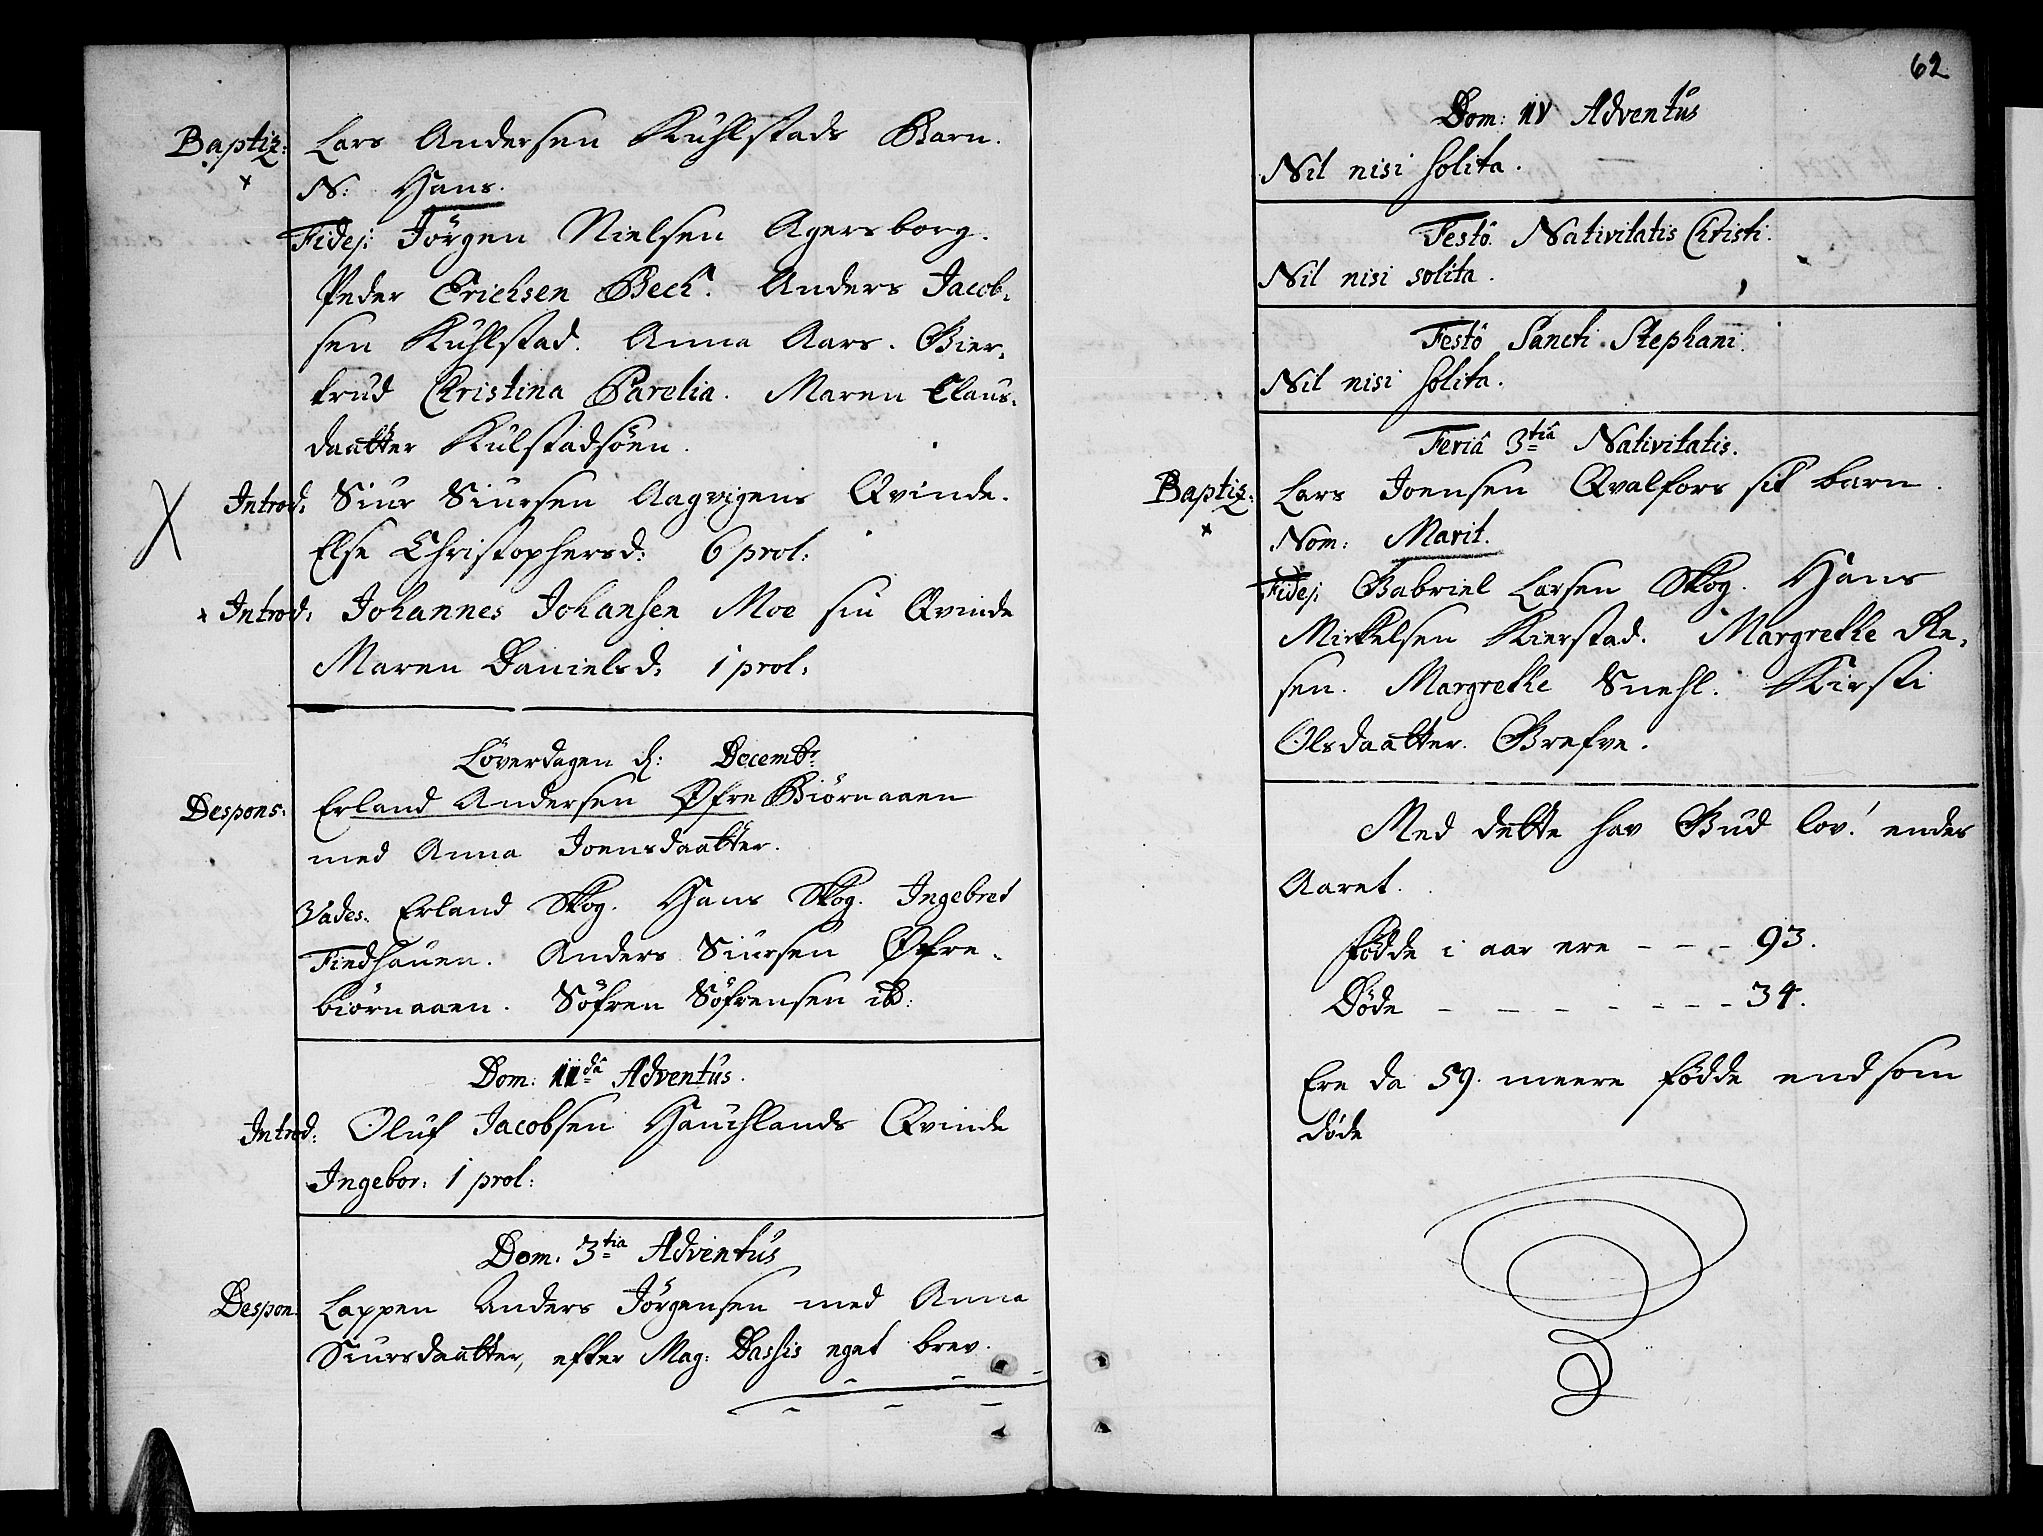 Baptiz: Lars Andersen Kuhlstads Barn.
N: Hans.
Fidej: Jörgen Nielsen Agersborg.
Peder Erichsen Bech. Anders Jacob-
sen Kuhlstad. Anna Aars. Gier-
trud Christina Parelia. Maren Claus-
daatter Kulstadsöen.
Introd: Siur Siursen Aagvigens Qvinde.
Else Christophersd: 6 prol:
Introd: Johannes Johansen Moe sin Qvinde
Maren Danielsd: 1 prol:
Löverdagen d: Decembr:
Despons: Erland Andersen Øfre Biörnaaen
med Anna Joensdaatter.
Vades. Erland Skog. Hans Skog. Ingebret
Fiedhauen. Anders Siursen Øfre-
biörnaaen. Söfren Söfrensen ib:
Dom: IIdâ Adventûs.
Introd: Oluf Jacobsen Hauchlands Qvinde
Ingebor: 1 prol:
Dom: 3tia Adventûs
Despon: Lappen Anders Jörgensen med Anna
Siursdaatter, efter Mag: Dassis eget brev.
62
Dom: IV Adventûs
Nil nisi solita.
Festô Nativitatis Christi.
Nil nisi solita.
Festô Sancti Stephani.
Nil nisi solita.
Feriâ 3tiâ Nativitatis.
Baptiz: Lars Joensen Qvalfors sit barn.
Nom: Marit.
Fidej: Gabriel Larsen Skog. Hans
Mickelsen Kierstad. Margrethe Re-
sen. Margrethe Snehl. Kirsti
Olsdaatter. Grefve.
Med dette hav Gud lov! endes
Aaret.
födde i aar ere - - - 93.
Döde - - - - - - - 34.
Ere da 59. meere födde end som
döde